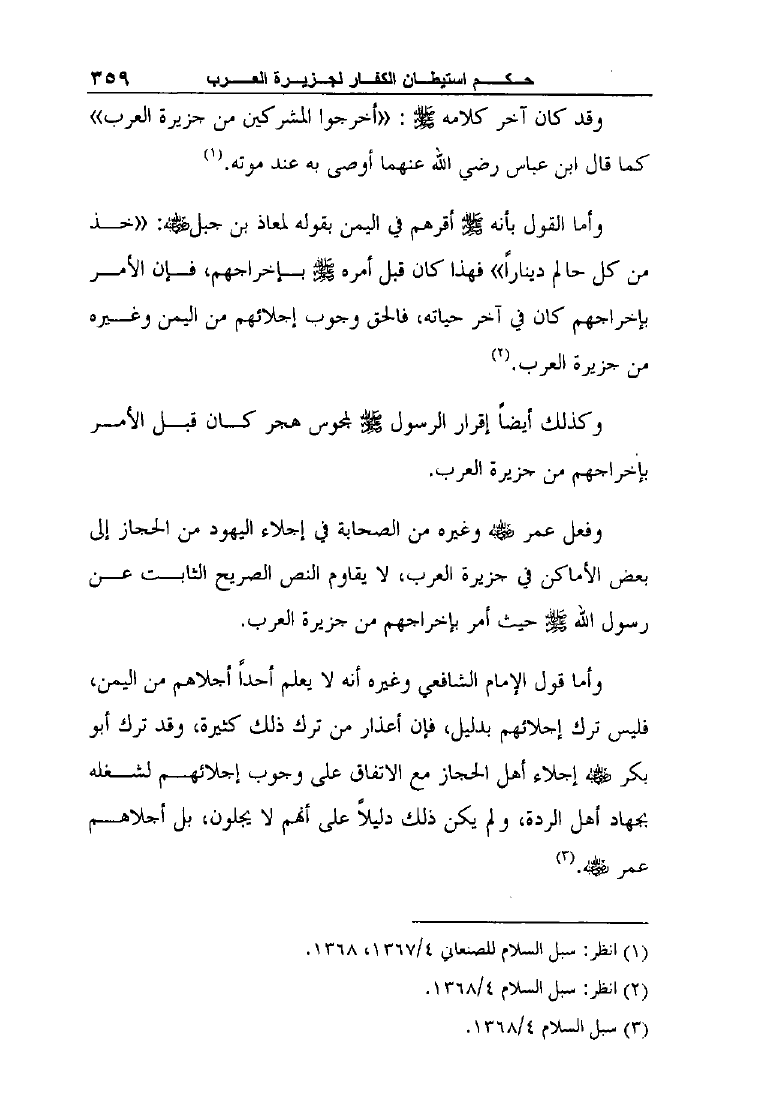 حكم استيطان الكفار لجزيرة العرب ٣٥٩
وقد كان آخر كلامه ﷺ : «أخرجوا المشركين من جزيرة العرب»
كما قال ابن عباس رضي الله عنهما أوصى به عند موته.(١)
وأما القول بأنه ﷺ أقرهم في اليمن بقوله لمعاذ بن جبل رضي الله عنه: «خذ
من كل حالم ديناراً» فهذا كان قبل أمره ﷺ بإخراجهم، فإن الأمر
بإخراجهم كان في آخر حياته، فالحق وجوب إجلائهم من اليمن وغيره
من جزيرة العرب.(٢)
وكذلك أيضاً إقرار الرسول ﷺ لمجوس هجر كان قبل الأمر
بإخراجهم من جزيرة العرب.
وفعل عمر رضي الله عنه وغيره من الصحابة في إجلاء اليهود من الحجاز إلى
بعض الأماكن في جزيرة العرب، لا يقاوم النص الصريح الثابت عن
رسول الله ﷺ حيث أمر بإخراجهم من جزيرة العرب.
وأما قول الإمام الشافعي وغيره أنه لا يعلم أحداً أجلاهم من اليمن،
فليس ترك إجلائهم بدليل، فإن أعذار من ترك ذلك كثيرة، وقد ترك أبو
بكر رضي الله عنه إجلاء أهل الحجاز مع الاتفاق على وجوب إجلائهم لشغله
بجهاد أهل الردة، ولم يكن ذلك دليلاً على أنهم لا يجلون، بل أجلاهم
عمر رضي الله عنه.(٣)
(١) انظر: سبل السلام للصنعاني ١٣٦٧/٤، ١٣٦٨.
(٢) انظر: سبل السلام ١٣٦٨/٤.
(٣) سبل السلام ١٣٦٨/٤.